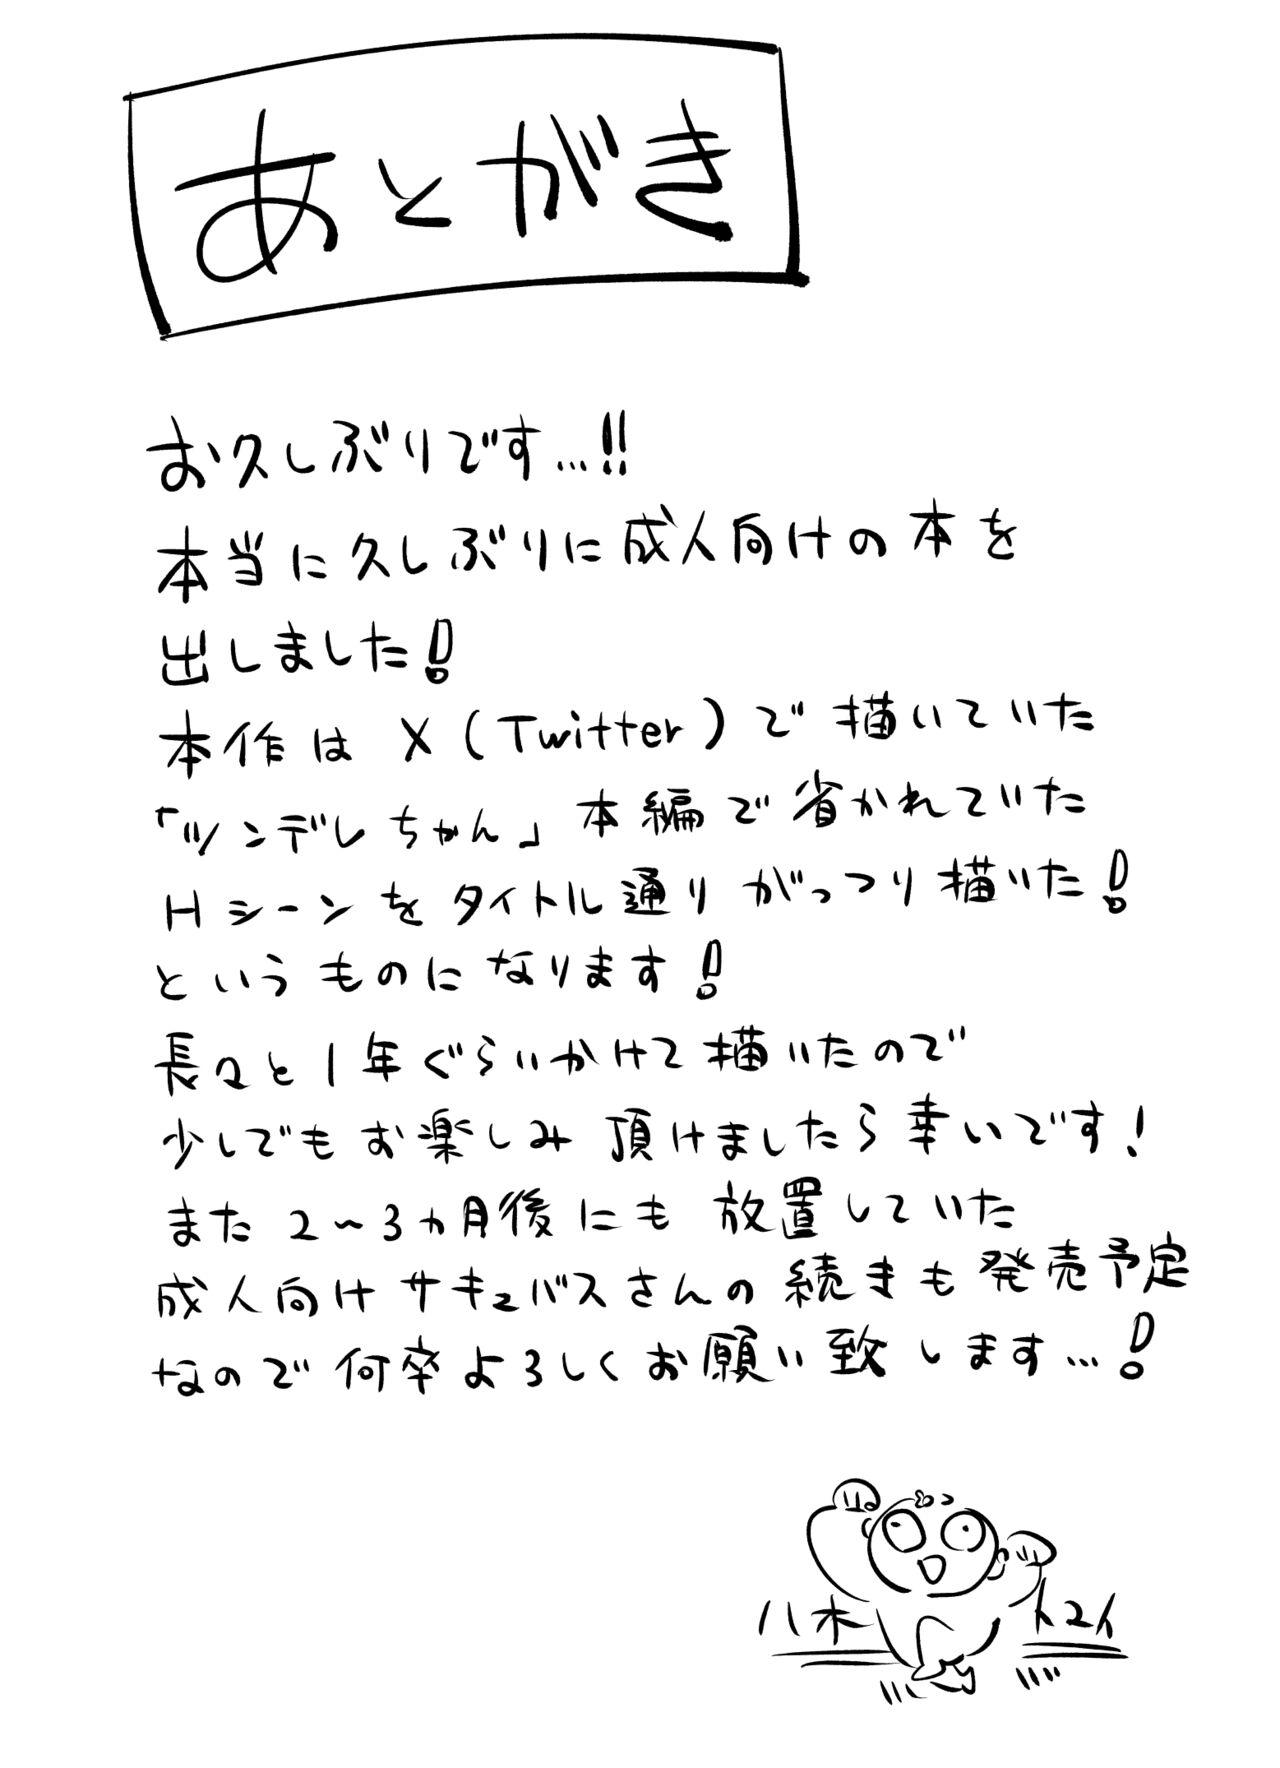 あとがき
お久しぶりです…!!
本当に久しぶりに成人向けの本を
出しました!
本作は X (Twitter) で描いていた
「ツンデレちゃん」本編で省かれていた
Hシーンをタイトル通りがっつり描いた!
というものになります!
長々と1年ぐらいかけて描いたので
少しでもお楽しみ頂けましたら幸いです!
また2〜3ヵ月後にも放置していた
成人向けサキュバスさんの続きも発売予定
なので何卒よろしくお願い致します…!
八木